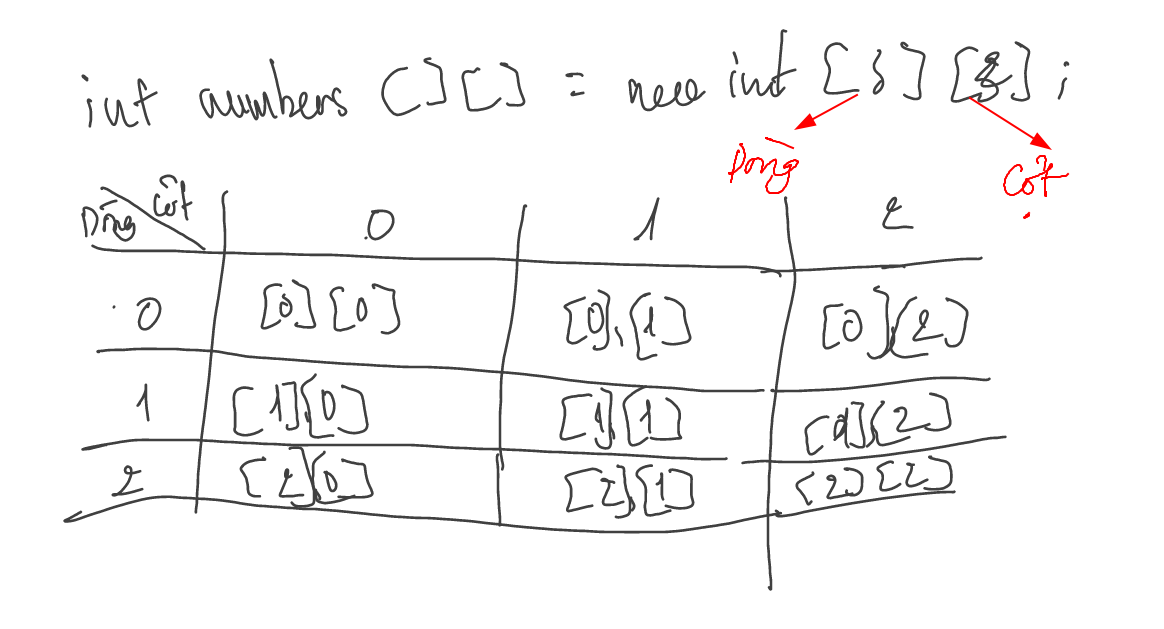 int numbers [][] = new int [3] [3];
Dòng Cột
Dòng Cột 0 1 2
0 [0][0] [0][1] [0][2]
1 [1][0] [1][1] [1][2]
2 [2][0] [2][1] [2][2]